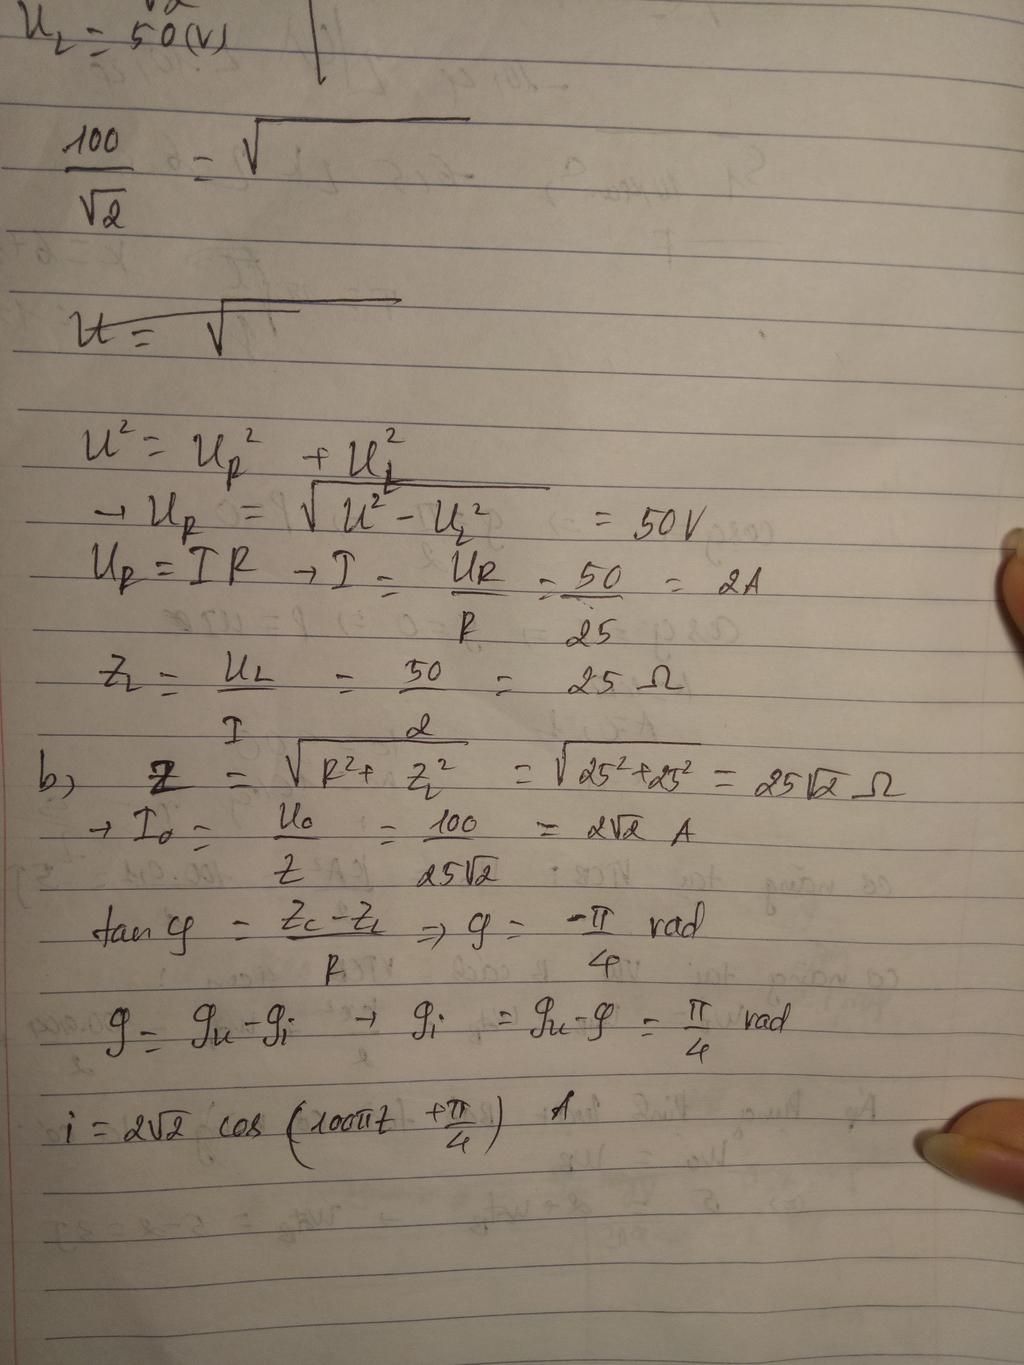 U_L = 50(V)
100/√2 = √
U = √
U² = U_R² + U_L²
→ U_R = √(U² - U_L²) = 50V
U_R = IR → I = U_R/R = 50/25 = 2A
Z_L = U_L/I = 50/2 = 25 Ω
b, Z = √(R² + Z_L²) = √(25² + 25²) = 25√2 Ω
→ I₀ = U₀/Z = 100/(25√2) = 2√2 A
tan φ = (Z_C - Z_L)/R ⇒ φ = -π/4 rad
φ = φ_u - φ_i → φ_i = φ_u - φ = π/4 rad
i = 2√2 cos (100πt + π/4) A